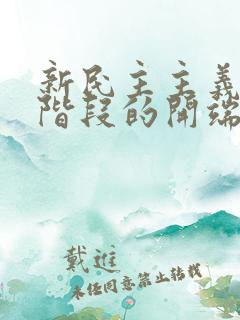 新民主主義
階段的開端
戴進
未经同意禁止转载